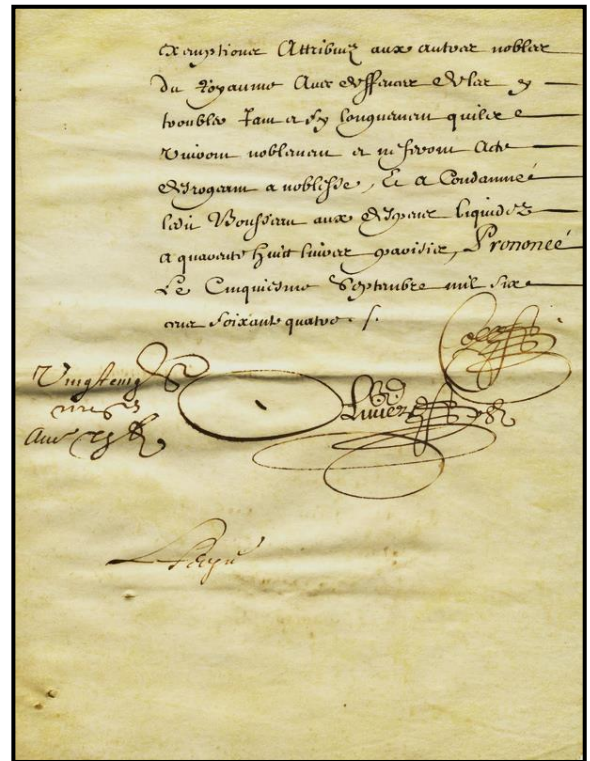 exemptions Attribuez aux autres nobles
du Royaume Avec deffences de les y
troubler Tant et sy longuement quils
Vivront noblement et ne feront Acte
desrogeant a noblesse, Et A Condamné
led. Bousseau aux despens liquidez
a quarente huit livres parisis, Prononcé
Le Cinquiesme Septembre mil six
cens soixante quatre
Vingt cinq